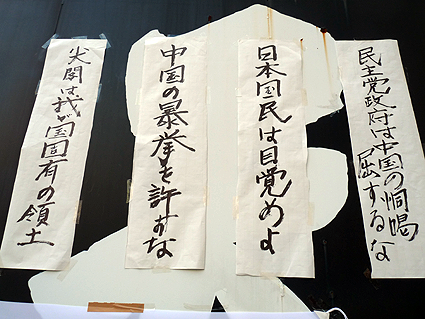 民主党政府は中国の恫喝に屈するな
日本国民は目覚めよ
中国の暴挙を許すな
尖閣は我が国固有の領土